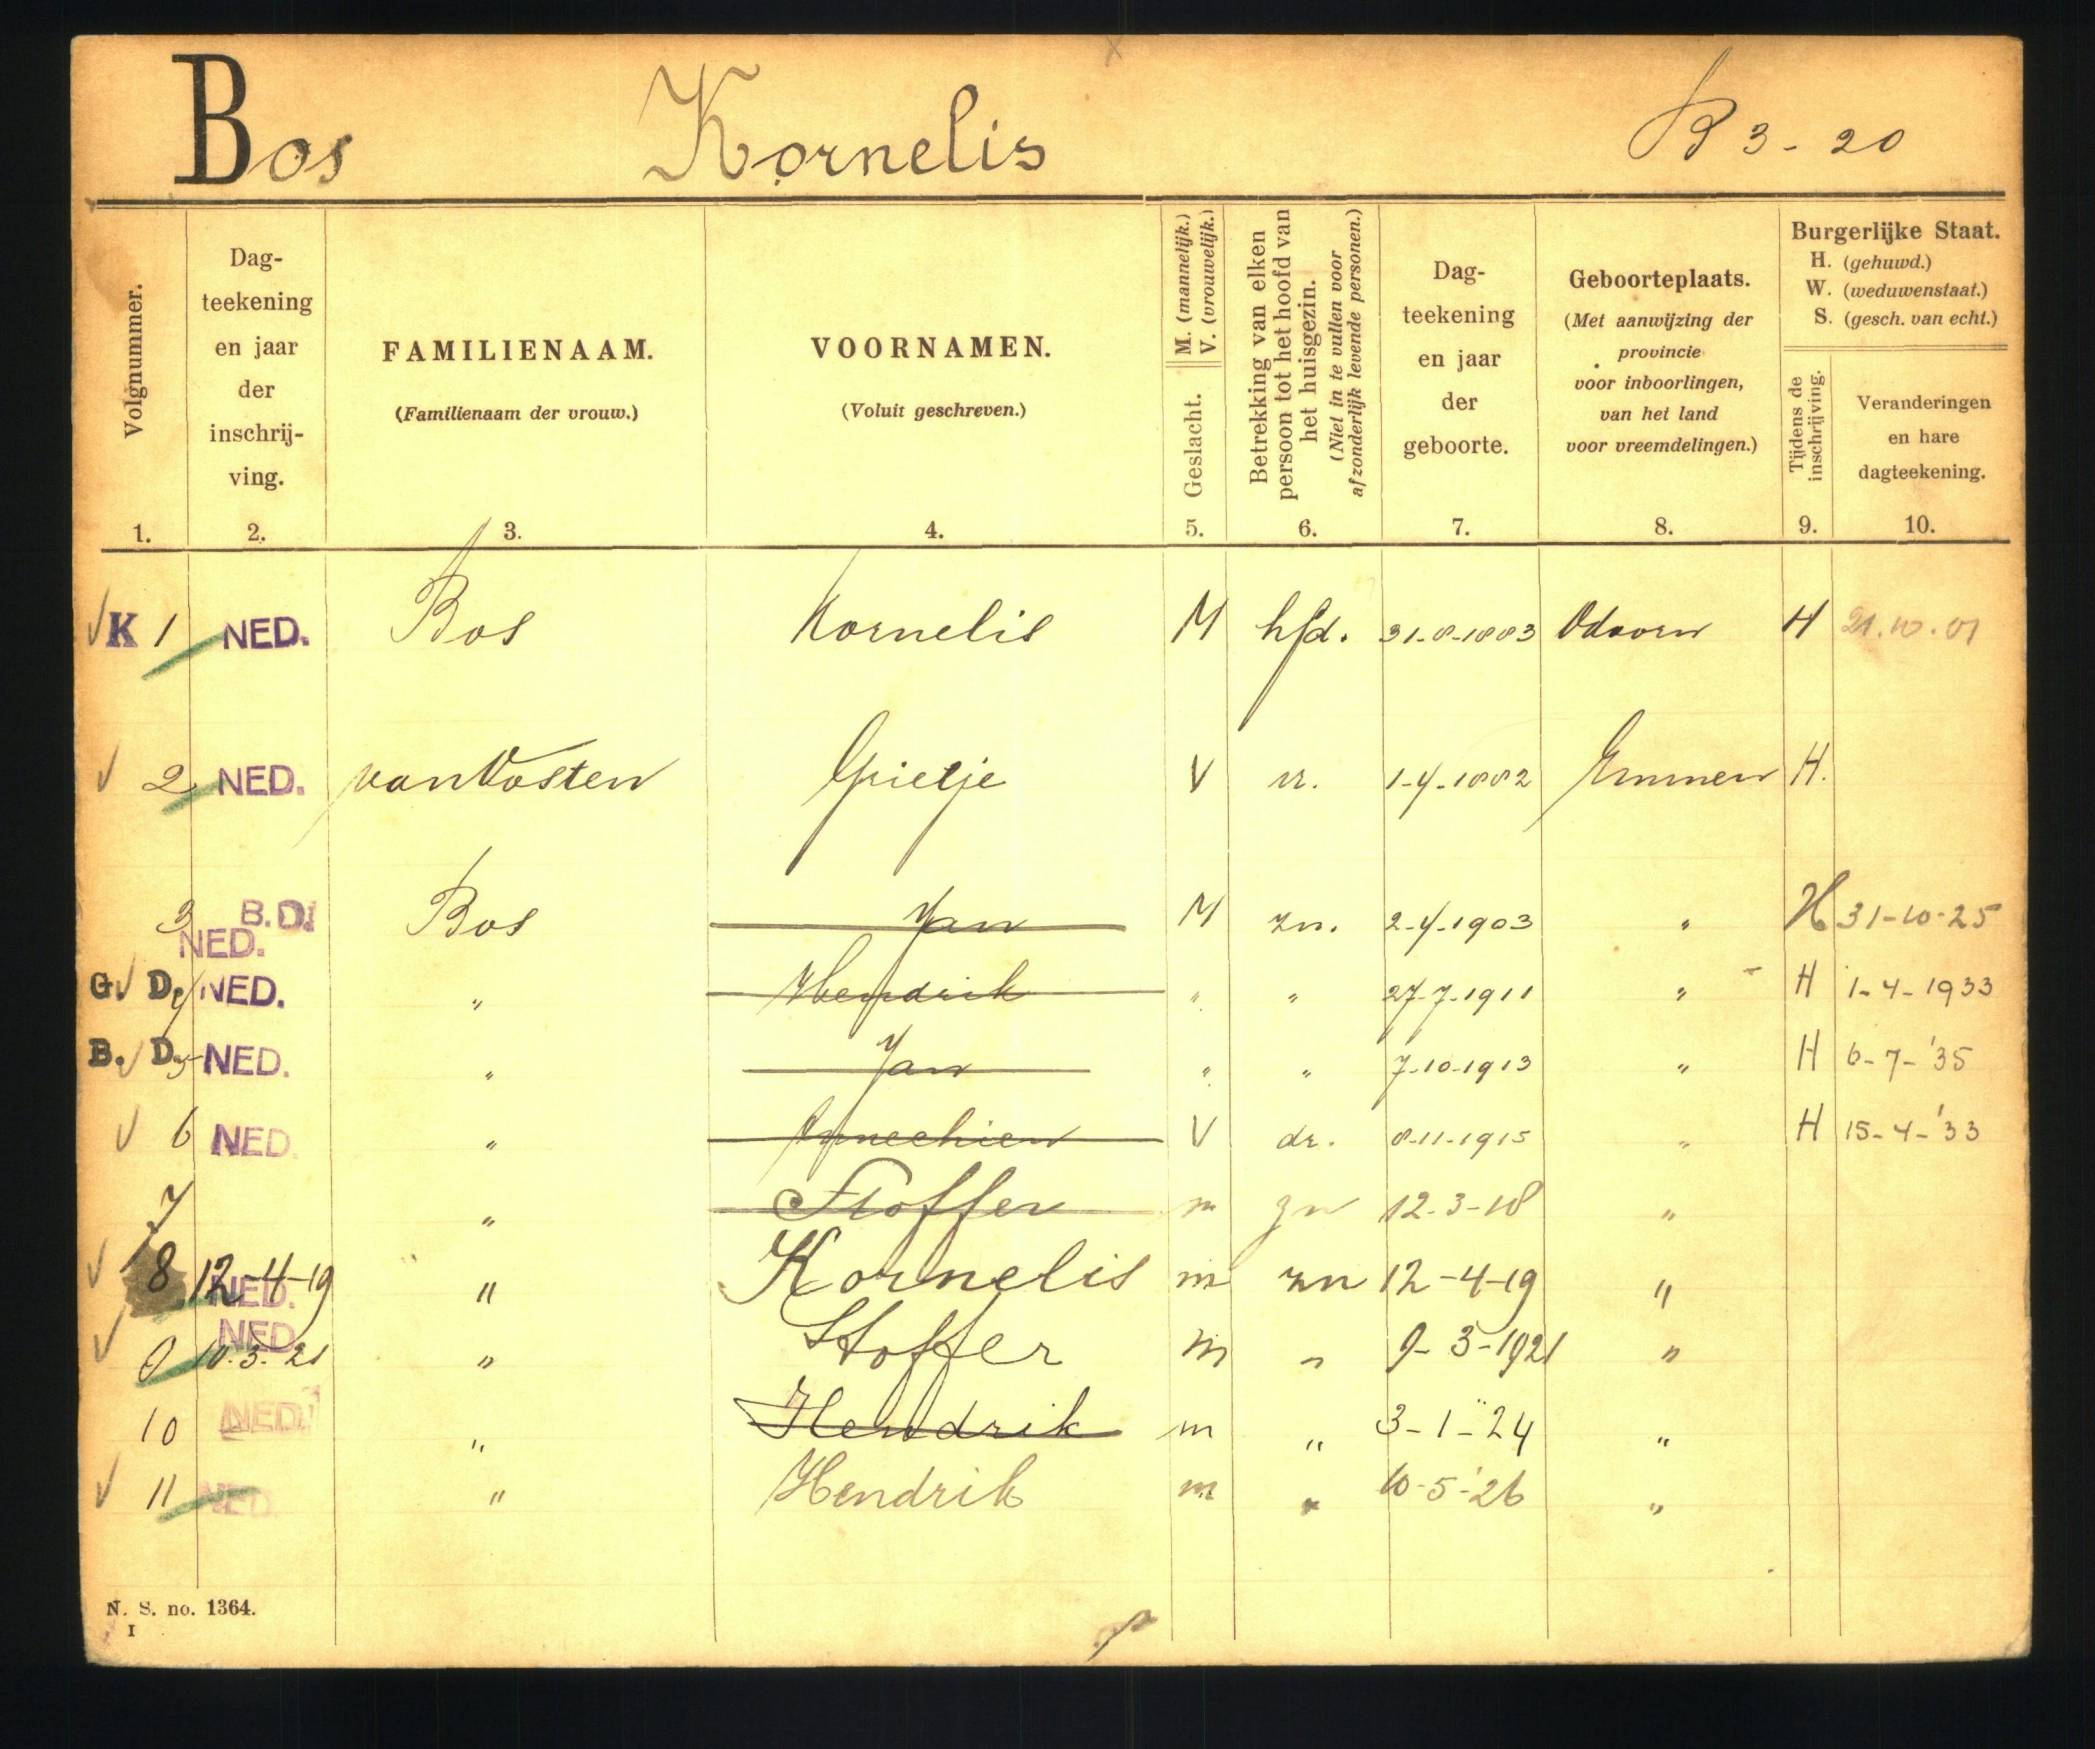 Bos Kornelis B 3 - 20
Volgnummer.
Dag-
teekening
en jaar
der
inschrij-
ving.
FAMILIENAAM.
(Familienaam der vrouw.)
VOORNAMEN.
(Voluit geschreven.)
Geslacht. M. (mannelijk.)
V. (vrouwelijk.)
Betrekking van elken
persoon tot het hoofd van
het huisgezin.
(Niet in te vullen voor
afzonderlijk levende personen.)
Dag-
teekening
en jaar
der
geboorte.
Geboorteplaats.
(Met aanwijzing der
provincie
voor inboorlingen,
van het land
voor vreemdelingen.)
Burgerlijke Staat.
H. (gehuwd.)
W. (weduwenstaat.)
S. (gesch. van echt.)
Tijdens de
inschrijving.
Veranderingen
en hare
dagteekening.
1. 2. 3. 4. 5. 6. 7. 8. 9. 10.
K 1 NED. Bos Kornelis M hfd. 31-8-1883 Odoorn H
2 NED. van Oosten Grietje V vr. 1-4-1882 Emmen H.
3 B.D. NED. Bos Jan M zn. 2-4-1903 " H 31-10-25
G. D. 4 NED. " Hendrik " " 27-7-1911 " H 1-4-1933
B. D. 5 NED. " Jan " " 7-10-1913 " H 6-7-'35
6 NED. " V dr. 8-11-1915 " H 15-4-'33
7 " Stoffer m zn 12-3-18 "
8 12-4-19 NED. " Kornelis m zn 12-4-19 "
9 10-3-21 NED. " Stoffer m " 9-3-1921 "
10 NED. " Hendrik m " 3-1-24 "
11 NED. " Hendrik m " 10-5-'26 "
N. S. no. 1364.
I